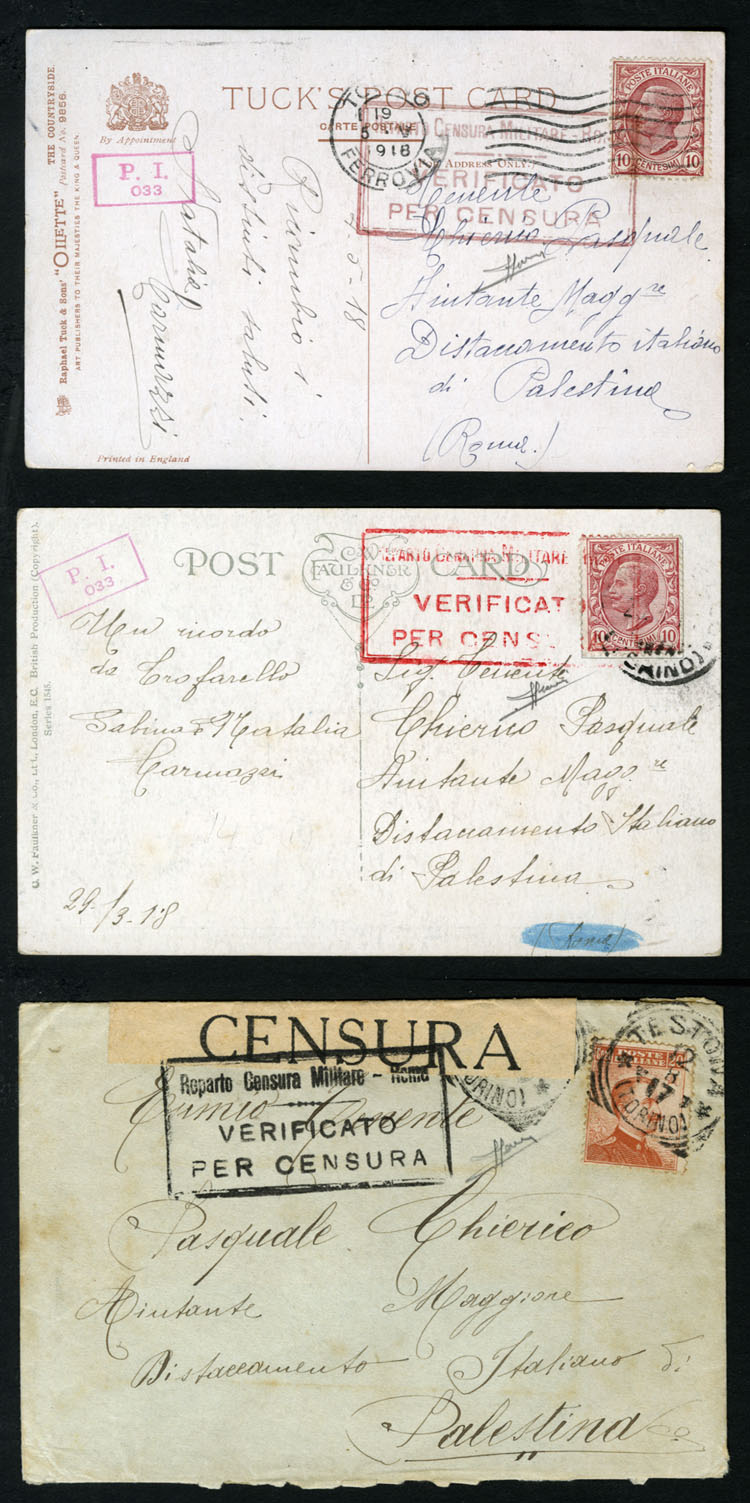 Raphael Tuck & Sons' "OILETTE" THE COUNTRYSIDE.
Postcard No. 9856.
ART PUBLISHERS TO THEIR MAJESTIES THE KING & QUEEN.
By Appointment
TUCK'S POST CARD
CARTE POSTALE
ADDRESS ONLY
P. I.
033
19
1918
FERROVIA
POSTE ITALIANE
10 CENTESIMI 10
CENSURA MILITARE - ROMA
VERIFICATO
PER CENSURA
7-5-18
Ricambio i
distinti saluti.
Natalia
Carmazzi
Tenente
Chierico Pasquale
Aiutante Magg.re
Distaccamento italiano
di Palestina
(Roma.)
Printed in England
C. W. Faulkner & Co., Ltd., London, E.C. British Production (Copyright).
Series 1545.
P. I.
033
POST CARD
C.W.
FAULKNER
& Co
LD.
REPARTO CENSURA MILITARE
VERIFICATO
PER CENSU
POSTE ITALIANE
10 CENTESIMI 10
(TORINO)
Un ricordo
da Trofarello
Sabina e Natalia
Carmazzi
29-/3-18
Sig. Tenente
Chierico Pasquale
Aiutante Magg.re
Distaccamento Italiano
di Palestina
(Roma)
CENSURA
Reparto Censura Militare - Roma
VERIFICATO
PER CENSURA
(TORINO) *
POSTE ITALIANE
* TESTONA *
12
17
(TORINO)
Tenente
Pasquale Chierico
Aiutante Maggiore
Distaccamento Italiano di
Palestina